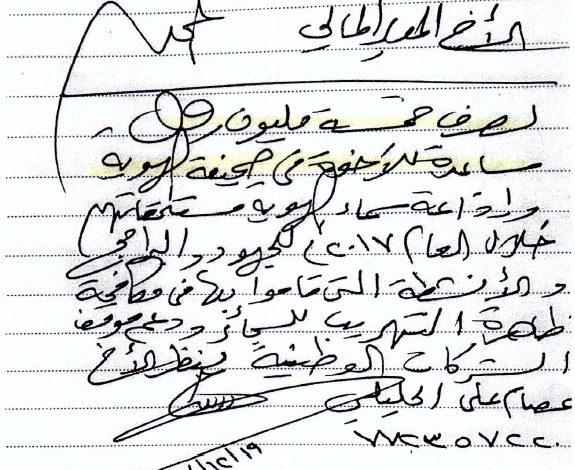 الأخ المدير المالي
يصرف خمسة مليون ريال
مساعدة للأخوة في صحيفة الهوية
وإذاعة سماء الهوية مستحقاتهم
خلال العام ٢٠١٧م للجهود والبرامج
والأنشطة التي قاموا بها في مكافحة
ظاهرة التهريب للسجائر ودعم موقف
الشركات الوطنية بنظر الأخ
عصام علي الحليلي
٧٧٢٣٥٧٢٢٠